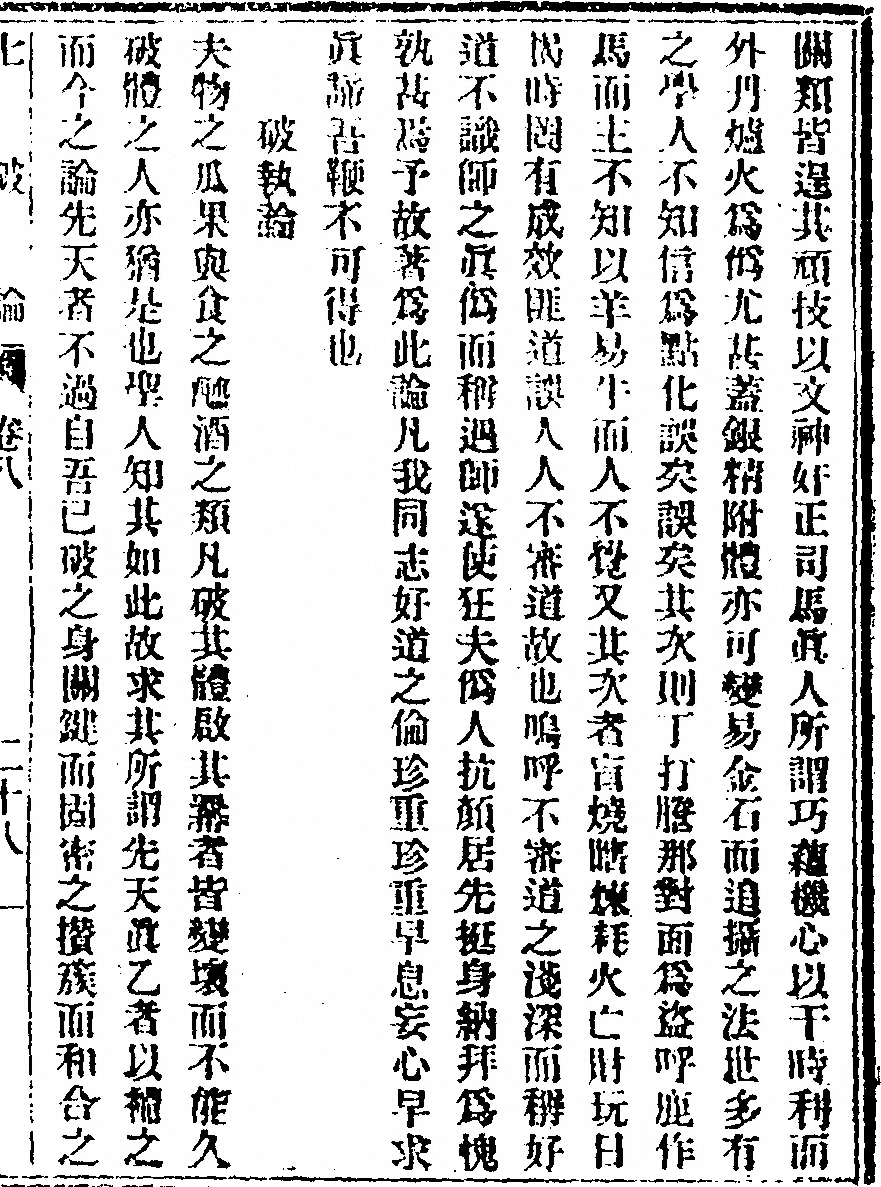 關類皆逞其頑技以文神奸正司馬眞人所謂巧蘊機心以干時利而
外丹爐火爲僞尤甚蓋銀精附體亦可變易金石而追攝之法世多有
之學人不知信爲點化誤矣誤矣其次則丁打膽那對面爲盜呼鹿作
馬而主不知以羊易牛而人不覺又其次者盲燒瞎煉耗火亡財玩日
愒時罔有成效匪道誤人人不審道故也嗚呼不審道之淺深而稱好
道不識師之眞僞而稱遇師遂使狂夫僞人抗顏居先挺身納拜爲愧
孰甚焉予故著爲此論凡我同志好道之倫珍重珍重早息妄心早求
眞諦吾鞭不可得也
破執論
夫物之瓜果與食之醢酒之類凡破其體啟其羃者皆變壞而不能久
破體之人亦猶是也聖人知其如此故求其所謂先天眞乙者以補之
而今之論先天者不過自吾已破之身關鍵而固密之攢蔟而和合之
七破論 卷八 二十八